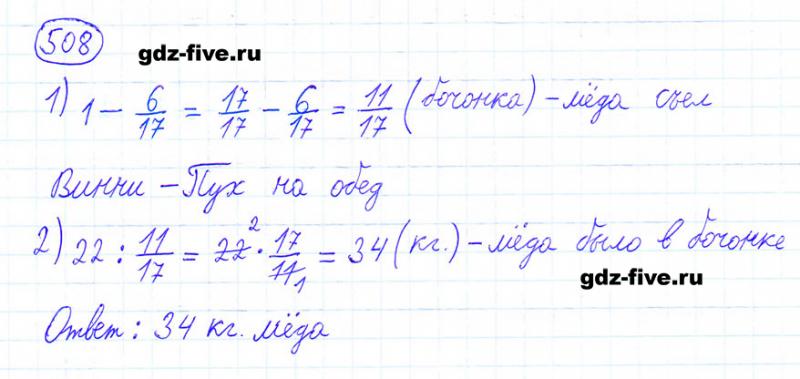 508
gdz-five.ru
1) 1 − 6/17 = 17/17 − 6/17 = 11/17 (бочонка) – мёда съел
Винни – Пух на обед
2) 22 : 11/17 = 22² · 17/11₁ = 34 (кг.) – мёда было в бочонке
gdz-five.ru
Ответ: 34 кг. мёда